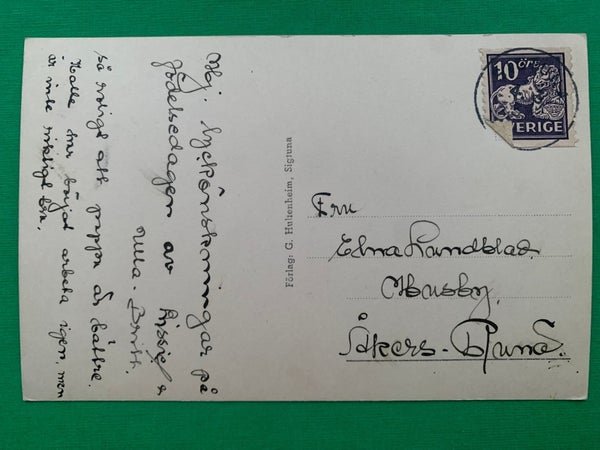 Hej. Lyckönskningar på
födelsedagen av Lissie o
Ulla-Britt.
så roligt att pappa är bättre.
Kalle har börjat arbeta igen, men
är inte riktigt bra.
Förlag: G. Hultenheim, Sigtuna
10 ÖRE
SVERIGE
Fru
Elna Randblad
Husby,
Åkers-Runö.